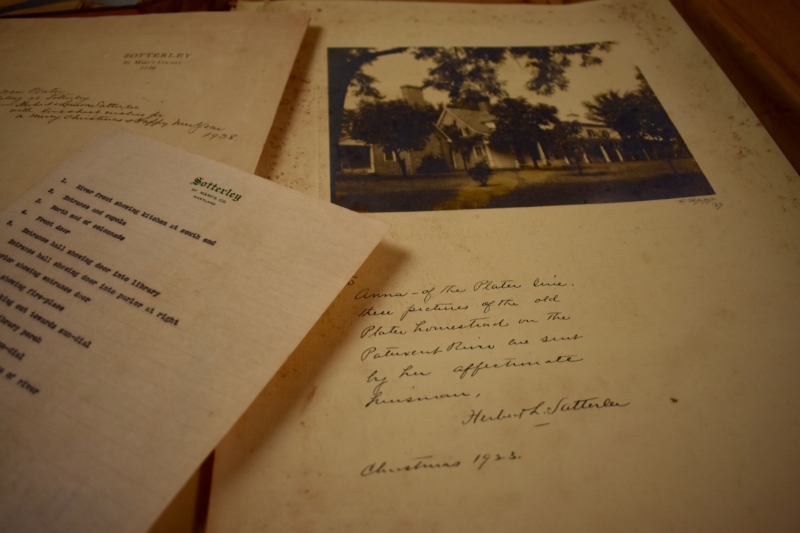 SOTTERLEY
St. Mary's County
with kindest wishes for
a Merry Christmas & Happy New Year
1938
Sotterley
ST. MARY'S CO.
MARYLAND
1. River front showing kitchen at south end
2. Entrance and cupola
3. North end of colonnade
4. Front door
Entrance hall showing door into library
Entrance hall showing door into parlor at right
showing entrance door
showing fire-place
out towards sun-dial
library porch
dial
of river
Anna - of the Plater line.
these pictures of the old
Plater homestead on the
Patuxent River are sent
by her affectionate
kinsman,
Herbert L. Satterlee
Christmas 1923.